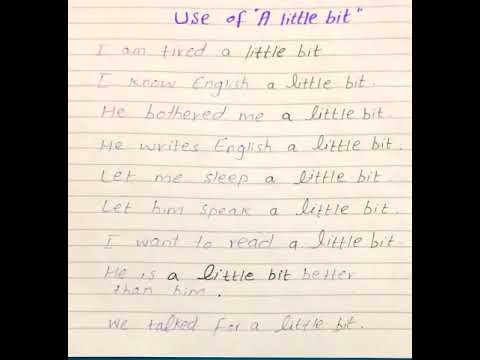 Use of "A little bit"
I am tired a little bit
I know English a little bit.
He bothered me a little bit.
He writes English a little bit.
Let me sleep a little bit.
Let him speak a little bit.
I want to read a little bit.
He is a little bit better
than him.
We talked for a little bit.